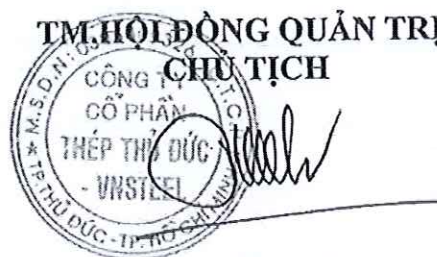 TM.HỘI ĐỒNG QUẢN TRỊ
CHỦ TỊCH
CÔNG TY
CỔ PHẦN
THÉP THỦ ĐỨC
- VNSTEEL
M.S.D.N:
TP.THỦ ĐỨC - TP. HỒ CHÍ MINH